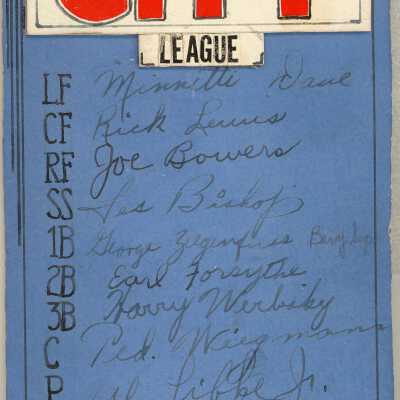 CITY
LEAGUE
LF Minnette Dave
CF Rick Lewis
RF Joe Bowers
SS Les Bishop
1B George
2B Earl Forsythe
3B Harry Werbiky
C Ted. Wiegmann
P Al Libke Jr.